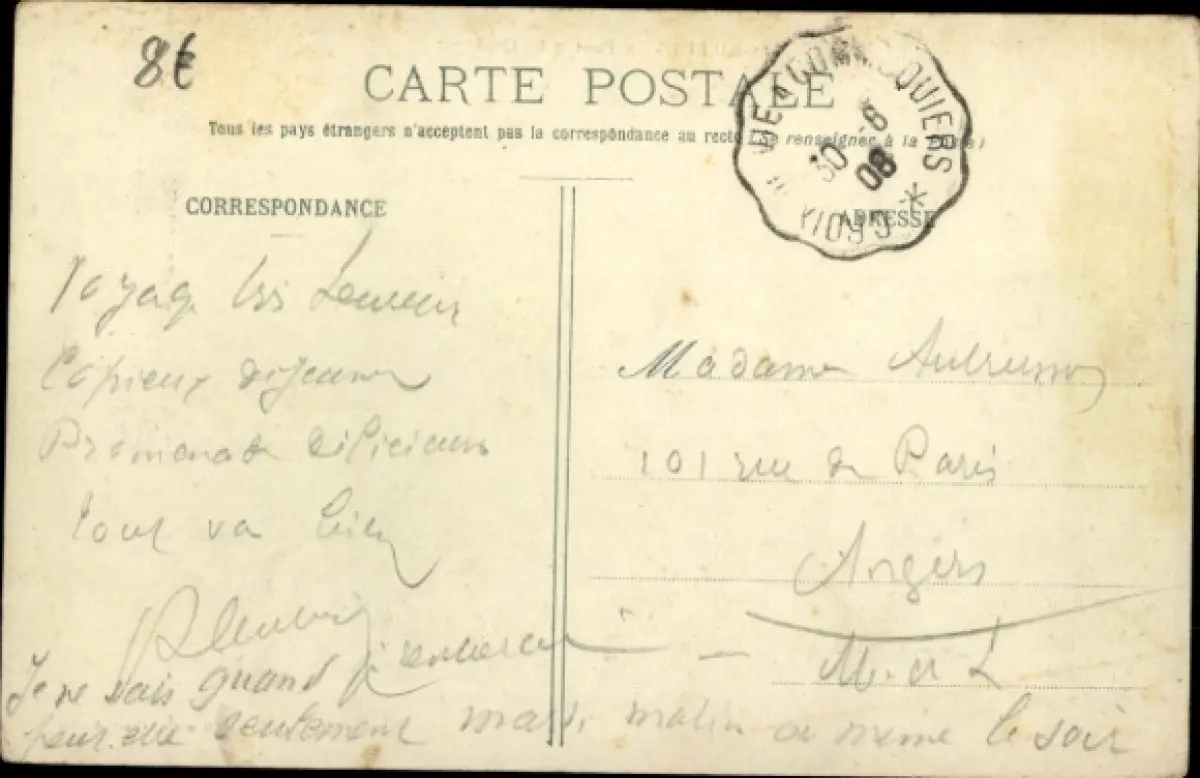 8€
CARTE POSTALE
Tous les pays étrangers n'acceptent pas la correspondance au recto (Se renseigner à la Poste)
COMMEQUIERS
30 -8
08
CORRESPONDANCE
ADRESSE
Voyage très
Copieux déjeuner
Promenade délicieuse
tout va bien
Je ne sais quand je rentrerai
peut-être seulement mardi matin ou même le soir
Madame
101 rue de Paris
Angers
M. et L